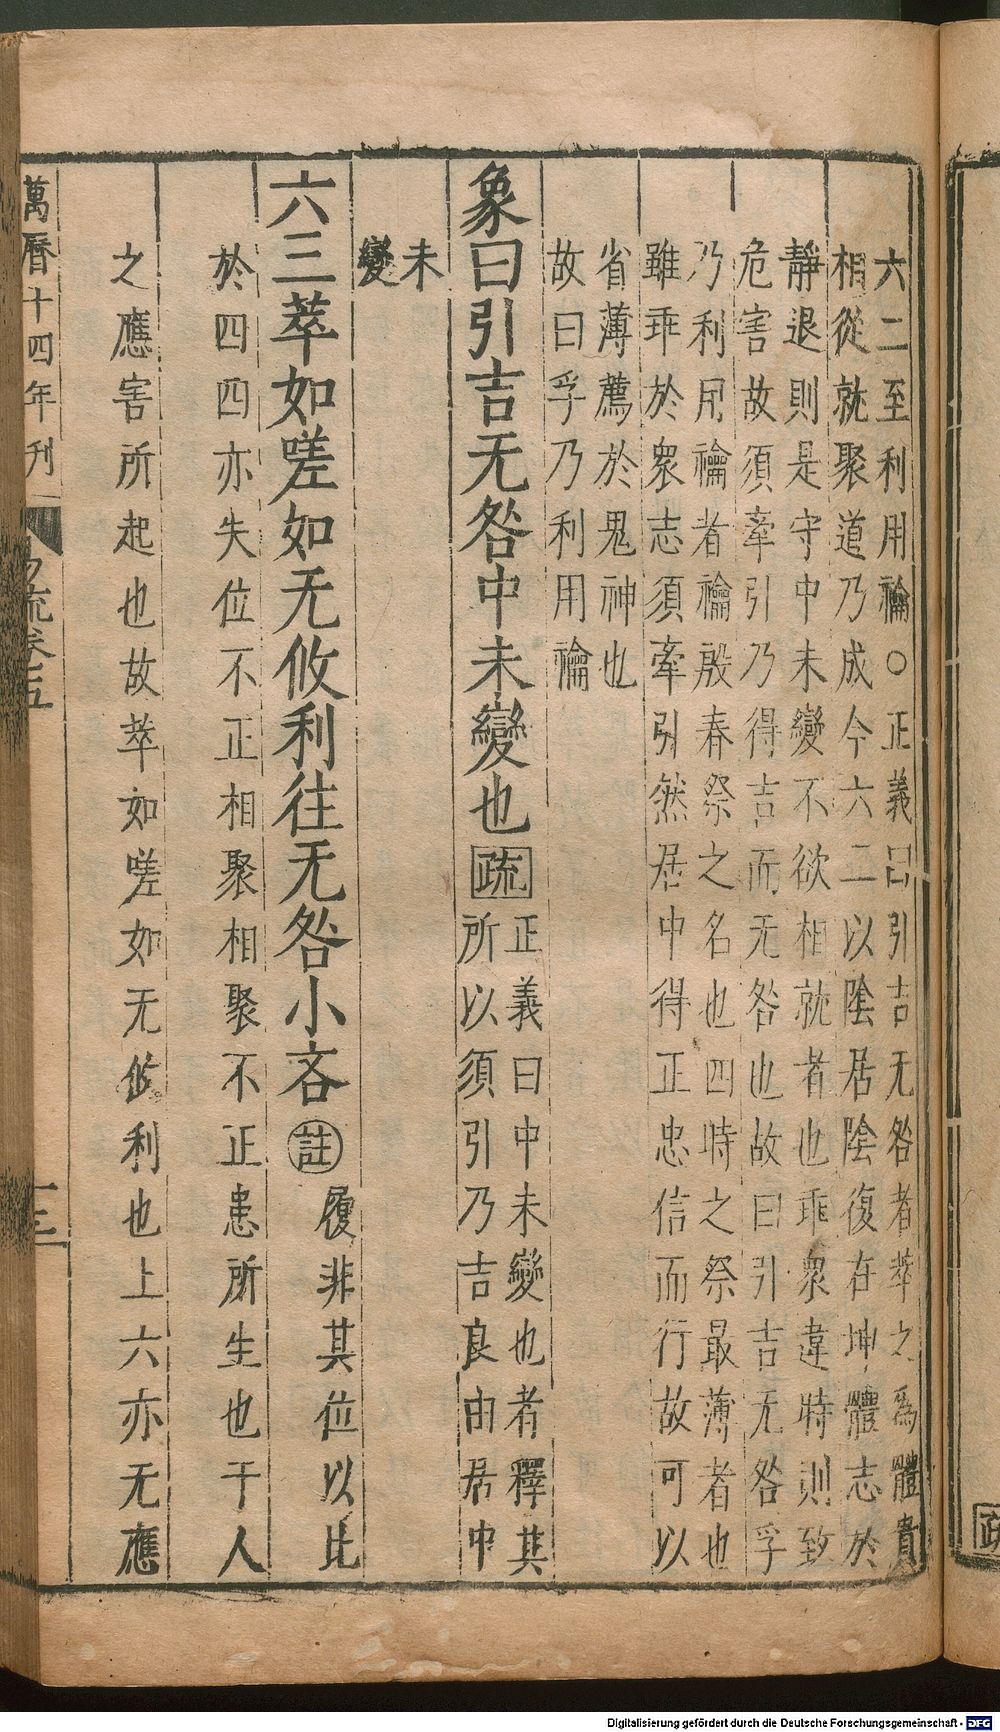 六二至利用禴○正義曰引吉无咎者萃之為體貴
相從就聚道乃成今六二以陰居陰復在坤體志於
靜退則是守中未變不欲相就者也乖衆違時則致
危害故須牽引乃得吉而无咎也故曰引吉无咎孚
乃利用禴者禴殷春祭之名也四時之祭最薄者也
雖乖於衆志須牽引然居中得正忠信而行故可以
省薄薦於鬼神也
故曰孚乃利用禴
象曰引吉无咎中未變也疏
正義曰中未變也者釋其
所以須引乃吉良由居中
未
變
六三萃如嗟如无攸利往无咎小吝註
履非其位以比
於四四亦失位不正相聚相聚不正患所生也干人
之應害所起也故萃如嗟如无攸利也上六亦无應
萬曆十四年刊
易疏卷五
十三
疏
Digitalisierung gefördert durch die Deutsche Forschungsgemeinschaft - DFG